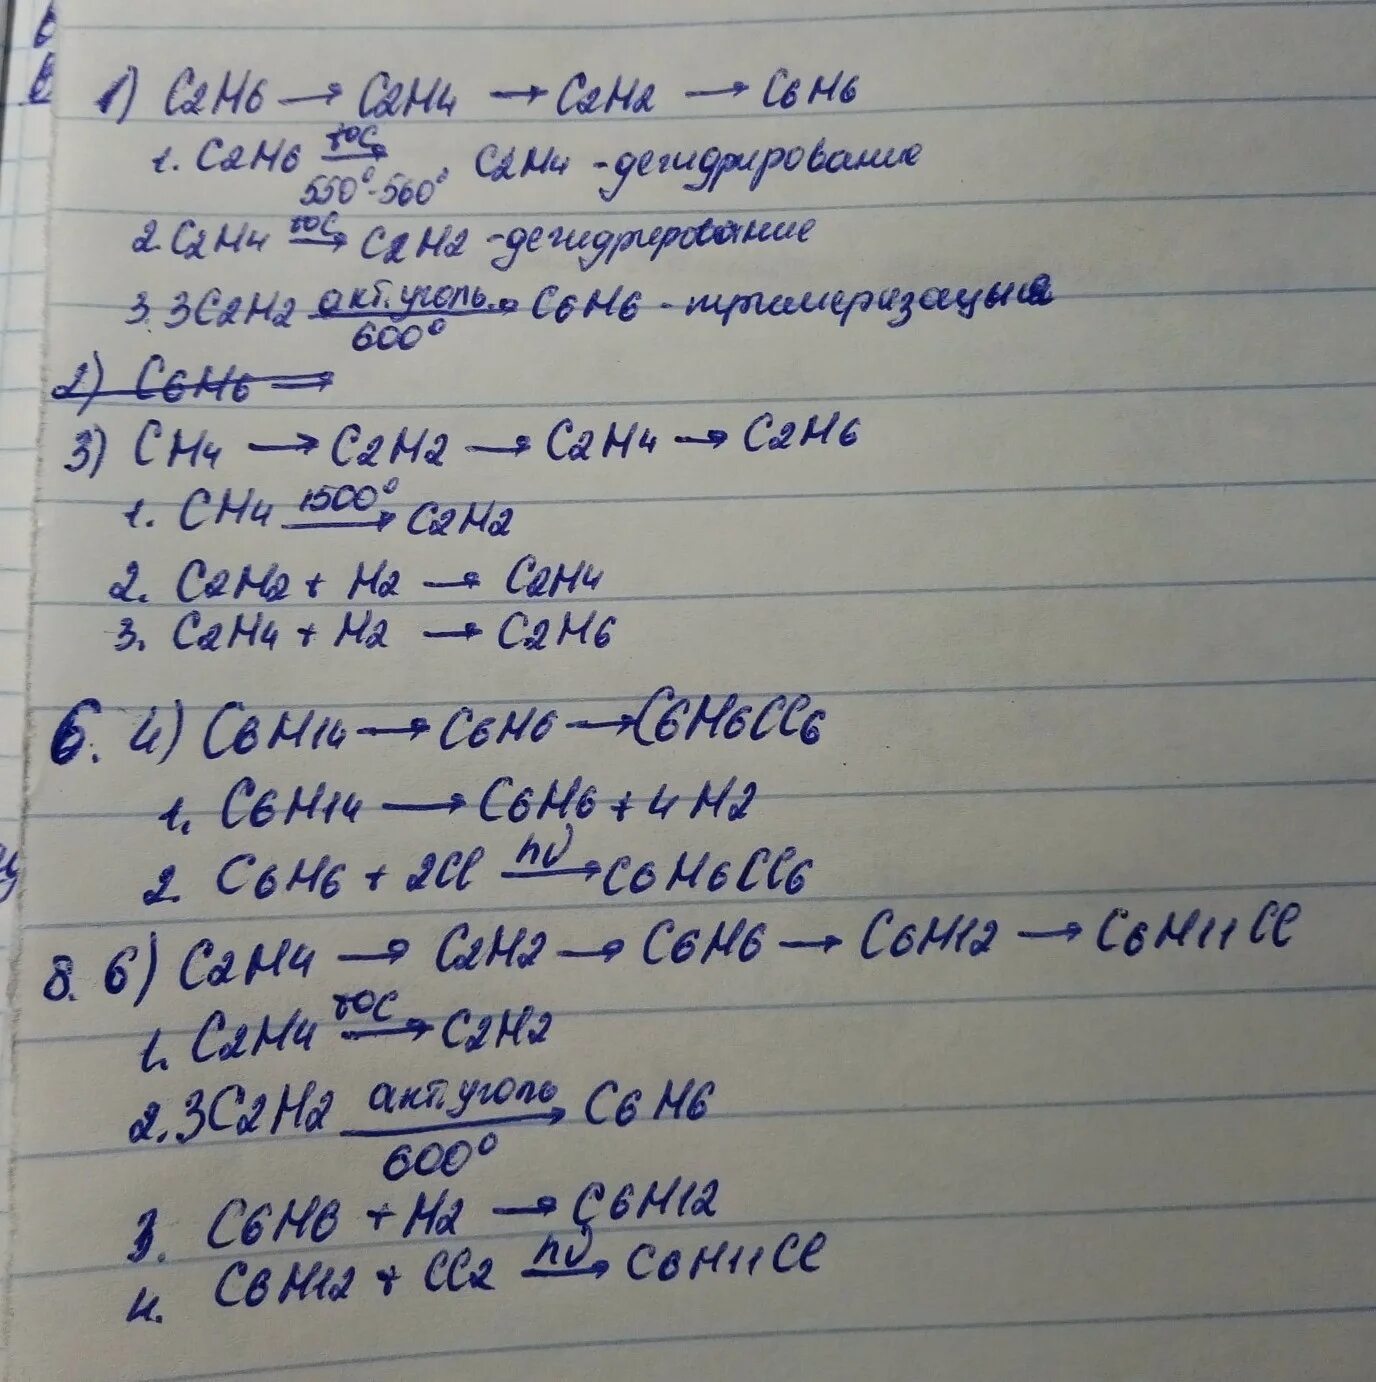 1) C2H6 → C2H4 → C2H2 → C6H6
1. C2H6 t°C→ 550°-560° C2H4 - дегидрирование
2. C2H4 t°C→ C2H2 - дегидрирование
3. 3C2H2 акт. уголь→ 600° C6H6 - тримеризацыя
2) C6H6 →
3) CH4 → C2H2 → C2H4 → C2H6
1. CH4 1500°→ C2H2
2. C2H2 + H2 → C2H4
3. C2H4 + H2 → C2H6
6. 4) C6H14 → C6H6 → C6H6Cl6
1. C6H14 → C6H6 + 4H2
2. C6H6 + 2Cl hν→ C6H6Cl6
8. 6) C2H4 → C2H2 → C6H6 → C6H12 → C6H11Cl
1. C2H4 t°C→ C2H2
2. 3C2H2 акт. уголь→ 600° C6H6
3. C6H6 + H2 → C6H12
4. C6H12 + Cl2 hν→ C6H11Cl